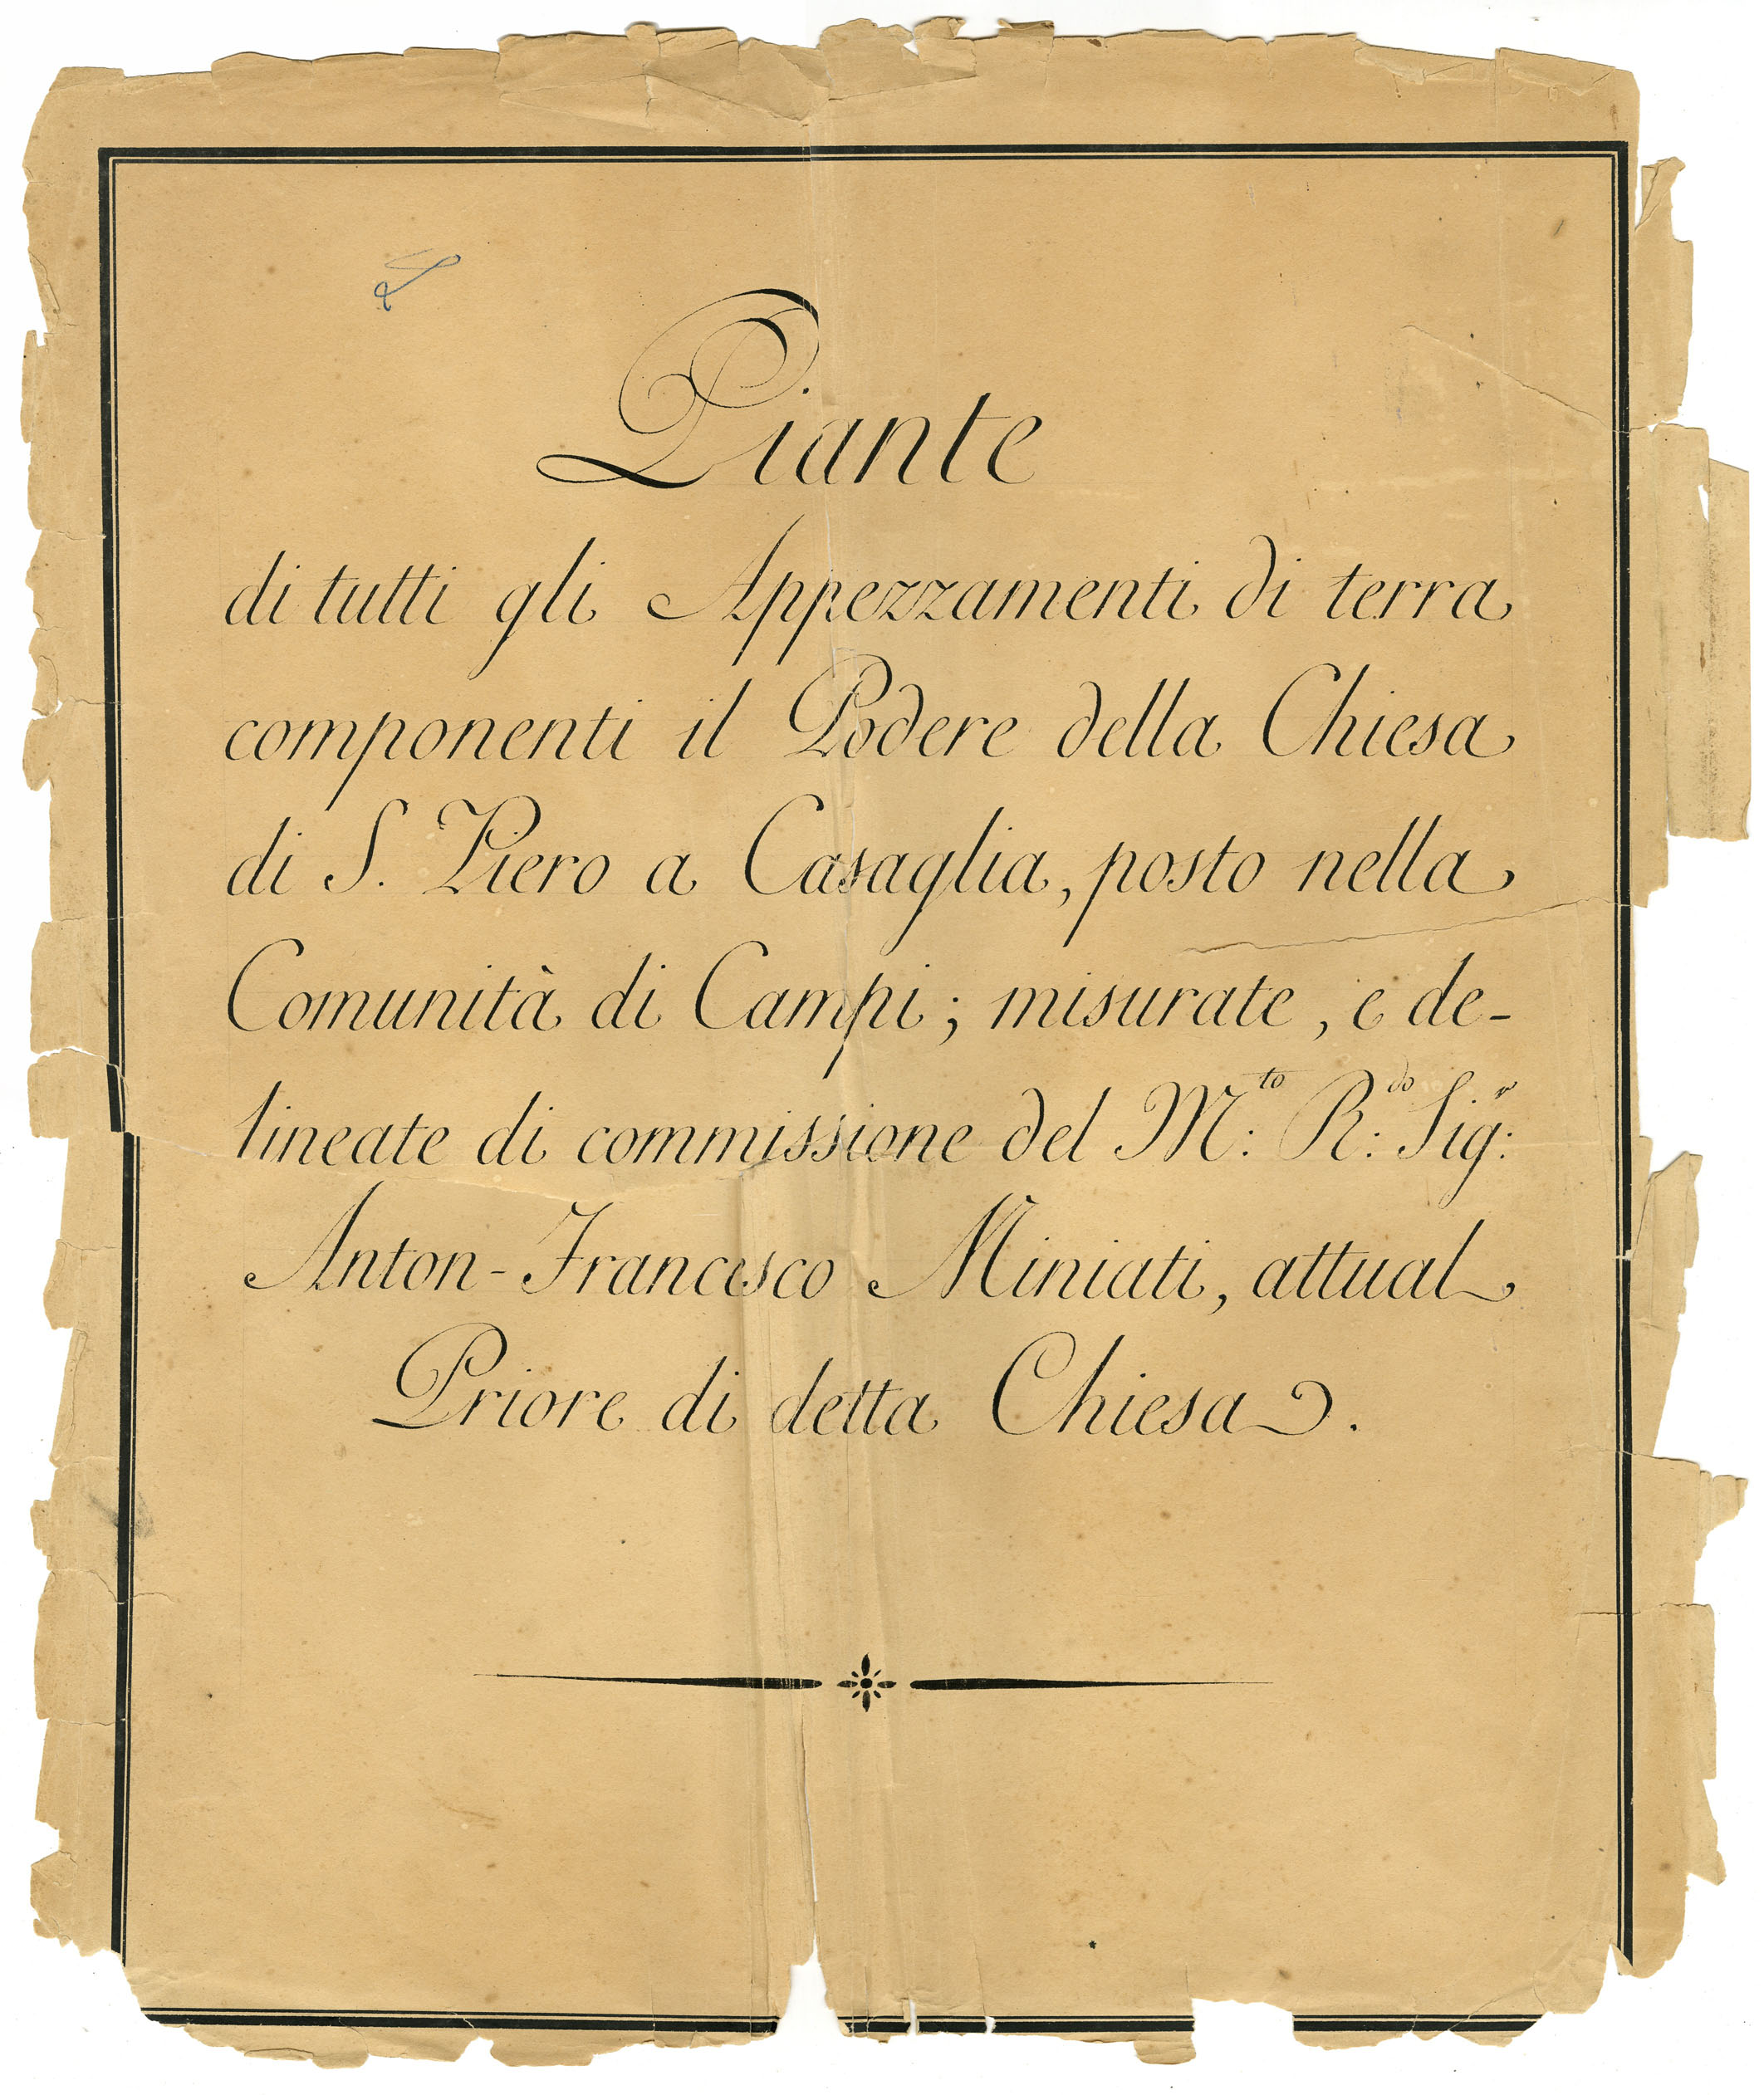 Piante
di tutti gli Appezzamenti di terra
componenti il Podere della Chiesa
di S. Piero a Casaglia, posto nella
Comunità di Campi; misurate, e de-
lineate di commissione del M.to R.do Sig.r
Anton-Francesco Miniati, attual
Priore di detta Chiesa.